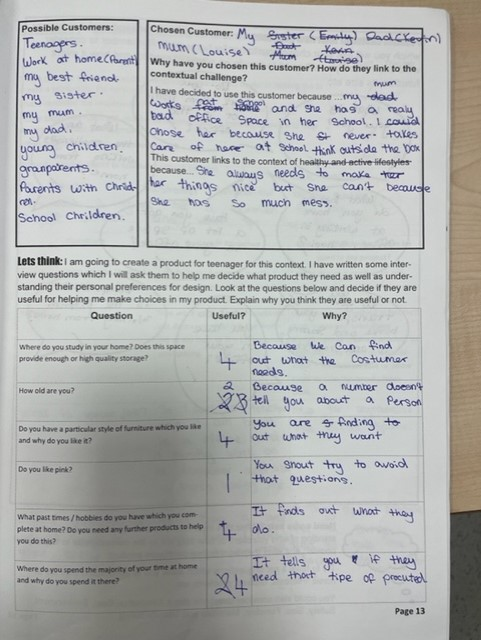 Possible Customers:
Teenagers.
Work at home (Parent)
my best friend
my sister.
my mum.
my dad.
young children.
granparents.
Parents with Chrild-
ren.
School Chrildren.
Chosen Customer: My Sister (Emily) Dad (Kevin)
mum (Louise) Dad Kevin
Mum (Louise)
Why have you chosen this customer? How do they link to the
contextual challenge?
mum
I have decided to use this customer because ... my dad
works from home at school and she has a realy
bad office space in her school. I could
chose her because she never takes
care of her at school think outside the box
This customer links to the context of healthy and active lifestyles
because... She always needs to make her
her things nice but she can't because
she has so much mess.
Lets think: I am going to create a product for teenager for this context. I have written some inter-
view questions which I will ask them to help me decide what product they need as well as under-
standing their personal preferences for design. Look at the questions below and decide if they are
useful for helping me make choices in my product. Explain why you think they are useful or not.
Question Useful? Why?
Where do you study in your home? Does this space
provide enough or high quality storage?
4
Because We Can find
out what the Costumer
needs.
How old are you?
2
23
Because a number doesn't
tell you about a Person
Do you have a particular style of furniture which you like
and why do you like it?
4
You are finding to
out what they want
Do you like pink?
1
You shout try to avoid
that questions.
What past times / hobbies do you have which you com-
plete at home? Do you need any further products to help
you do this?
4
It finds out what they
do.
Where do you spend the majority of your time at home
and why do you spend it there?
24
It tells you if they
need that tipe of procuted
Page 13